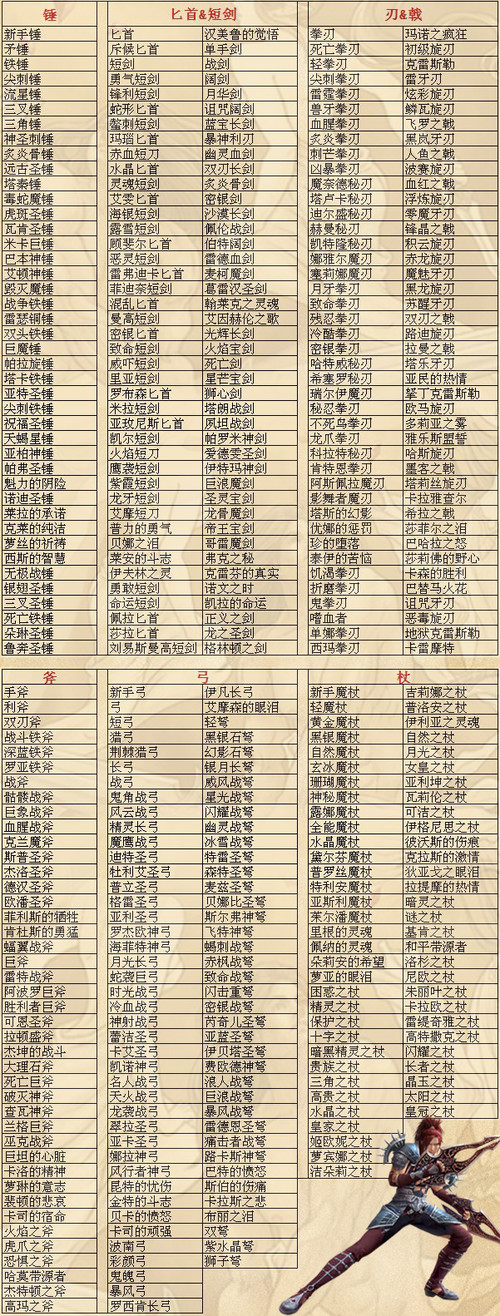 锤 匕首&短剑 刃&戟
新手锤 匕首 汉美鲁的觉悟 拳刃 玛诺之疯狂
矛锤 斥候匕首 单手剑 死亡拳刃 初级旋刃
铁锤 短剑 战剑 轻拳刃 克雷斯勒
尖刺锤 勇气短剑 阔剑 尖刺拳刃 雷牙刃
流星锤 锋利短剑 月华剑 雷霆拳刃 炫彩旋刃
三叉锤 蛇形匕首 诅咒阔剑 兽牙拳刃 鳞瓦旋刃
三角锤 螯刺短剑 蓝宝长剑 血腥拳刃 飞罗之戟
神圣刺锤 玛瑙匕首 暴神利刃 炙炎拳刃 黑岚牙刃
炙炎骨锤 赤血短刀 幽灵血剑 刺芒拳刃 人鱼之戟
远古圣锤 水晶匕首 双刃长剑 凶暴拳刃 波赛旋刃
塔秦锤 灵魂短剑 战剑剑 魔奈德秘刃 血红之戟
毒蛇魔锤 艾雯匕首 密银剑 塔卢卡秘刃 浮炼旋刃
虎斑圣锤 海银短剑 沙漠长剑 迪尔盛秘刃 零魔牙刃
瓦肯圣锤 露雪短剑 佩伦战剑 赫曼秘刃 锋晶之戟
米卡巨锤 顾斐尔匕首 伯特阔剑 凯特隆秘刃 积云旋刃
巴本神锤 恶灵短剑 雷德血剑 娜雅尔魔刃 赤龙旋刃
艾顿神锤 雷弗迪卡匕首 麦柯魔剑 塞莉娜魔刃 魔魅牙刃
毁灭魔锤 菲迪奈短剑 葛雷汉圣剑 月牙拳刃 黑龙旋刃
战争铁锤 混乱匕首 翰莱克之灵魂 致命拳刃 苏醒牙刃
雷瑟铜锤 曼高短剑 艾因赫伦之歌 残忍拳刃 双刃之戟
双头铁锤 密银匕首 光辉长剑 冷酷拳刃 路迪旋刃
巨魔锤 致命短剑 火焰宝剑 密银拳刃 拉曼之戟
帕拉旋锤 威吓短剑 死亡剑 哈特威秘刃 塔乐牙刃
塔卡铁锤 里亚短剑 星芒宝剑 希塞罗秘刃 亚民的热情
亚特圣锤 罗布森匕首 狮心剑 瑞尔伊魔刃 挐丁克雷斯勒
尖刺铁锤 米拉短剑 塔朗战剑 秘忍拳刃 欧马旋刃
祝福圣锤 亚玫尼斯匕首 夙坦战剑 不死鸟拳刃 多莉亚之雾
天蝎星锤 凯尔短剑 帕罗米神剑 龙爪拳刃 雅乐斯盟誓
亚柏神锤 火焰短刀 爱德雯圣剑 科拉特秘刃 哈斯旋刃
帕弗圣锤 鹰袭短剑 伊特玛神剑 肯特恩拳刃 墨客之戟
魅力的阴险 紫霞短剑 巨浪魔剑 阿斯佩拉魔刃 塔莉丝旋刃
诺迪圣锤 龙牙短剑 圣灵宝剑 影舞者魔刃 卡拉雅查尔
莱拉的承诺 艾摩短刀 龙骨魔剑 塔斯的幻影 希拉之戟
克莱的纯洁 普力的勇气 帝王宝剑 优娜的惩罚 莎菲尔之泪
萝丝的祈祷 贝娜之泪 哥雷魔剑 珍的堕落 巴哈拉之怒
西斯的智慧 莱安的斗志 弗克之秘 泰伊的苦恼 莎莉佛的野心
无极战锤 伊夫林之灵 克雷芬的真实 饥渴拳刃 卡森的胜利
银翅圣锤 勇敢短剑 诺文之时 折磨拳刃 巴替马火花
三叉圣锤 命运短剑 凯拉的命运 鬼拳刃 诅咒牙刃
死亡铁锤 佩拉匕首 正义之剑 嗜血者 恶毒旋刃
朵琳圣锤 莎拉匕首 龙之圣剑 单娜拳刃 地狱克雷斯勒
鲁奔圣锤 刘易斯曼高短剑 格林顿之剑 西玛拳刃 卡雷摩特
斧 弓 杖
手斧 新手弓 伊凡长弓 新手魔杖 吉莉娜之杖
利斧 弓 艾摩森的眼泪 轻魔杖 普洛安之杖
双刃斧 短弓 轻弩 黄金魔杖 伊利亚之灵魂
战斗铁斧 猎弓 黑银石弩 黑银魔杖 自然之杖
深蓝铁斧 荆棘猎弓 幻影石弩 自然魔杖 月光之杖
罗亚铁斧 长弓 银月长弩 玄冰魔杖 女皇之杖
战斧 战弓 威风战弩 珊瑚魔杖 亚利坤之杖
骷髅战斧 鬼角战弓 星光战弩 神秘魔杖 瓦莉伦之杖
巨象战斧 风云战弓 闪耀战弩 露娜魔杖 可洁之杖
血腥战斧 精灵长弓 幽灵战弩 全能魔杖 伊格尼思之杖
克兰魔斧 魔鹰战弓 冰雪战弩 水晶魔杖 彼沃斯的伤痕
斯普圣斧 迪特圣弓 特雷圣弩 黛尔芬魔杖 克拉斯的激情
杰洛圣斧 牡利艾圣弓 特森圣弩 普罗丝魔杖 狄亚戈之眼泪
德汉圣斧 普立圣弓 麦兹圣弩 特利安魔杖 拉提摩的热情
欧潘圣斧 格雷圣弓 贝娜比圣弩 亚斯利魔杖 暗灵之杖
菲利斯的牺牲 亚利圣弓 斯尔弗神弩 茱尔潘魔杖 谜之杖
肯杜斯的勇猛 罗杰欧神弓 飞特神弩 里根的灵魂 基肯之杖
蝠翼战斧 海菲特神弓 蝎刺战弩 佩纳的灵魂 和平带源者
巨斧 月光长弓 赤枫战弩 朵莉安的希望 洛杉之杖
雷特战斧 蛇袭巨弓 致命战弩 萝亚的眼泪 尼欧之杖
阿波罗巨斧 时光战弓 闪击重弩 困惑之杖 朱丽叶之杖
胜利者巨斧 冷血战弓 密银战弩 精灵之杖 卡拉欧之杖
可恩圣斧 神射战弓 芮奇儿圣弩 保护之杖 雷缇奇雅之杖
拉顿盛斧 蕾洁圣弓 亚雷圣弩 十字之杖 高特撒克之杖
杰坤的战斗 卡艾圣弓 伊贝塔圣弩 暗黑精灵之杖 闪耀之杖
大理石斧 凯诺神弓 费欧德神弩 贵族之杖 长者之杖
死亡巨斧 名人战弓 浪人战弩 三角之杖 晶玉之杖
破灭神斧 天火战弓 巨浪战弩 高贵之杖 太阳之杖
查瓦神斧 龙袭战弓 暴风战弩 水晶之杖 皇冠之杖
兰格巨斧 翠拉圣弓 雷德恩圣弩 皇家之杖
亚克战斧 亚卡圣弓 痛击者战弩 姬欧妮之杖
巨坦的心脏 娜拉神弓 路卡斯神弩 萝宾娜之杖
卡洛的精神 风行者神弓 巴特的愤怒 洁朵莉之杖
萝琳的意志 昆特的忧伤 斯伯的伤痛
裴顿的悲哀 金特的斗志 卡拉斯之悲
卡司的宿命 贝卡的愤怒 布丽之泪
火焰之斧 卡司的顽强 双弩
虎爪之斧 波南弓 紫水晶弩
恐惧之斧 彩颜弓 狮子弩
哈莫带源者 鬼魄弓
杰特顿之斧 暴风弓
高玛之斧 罗西肯长弓